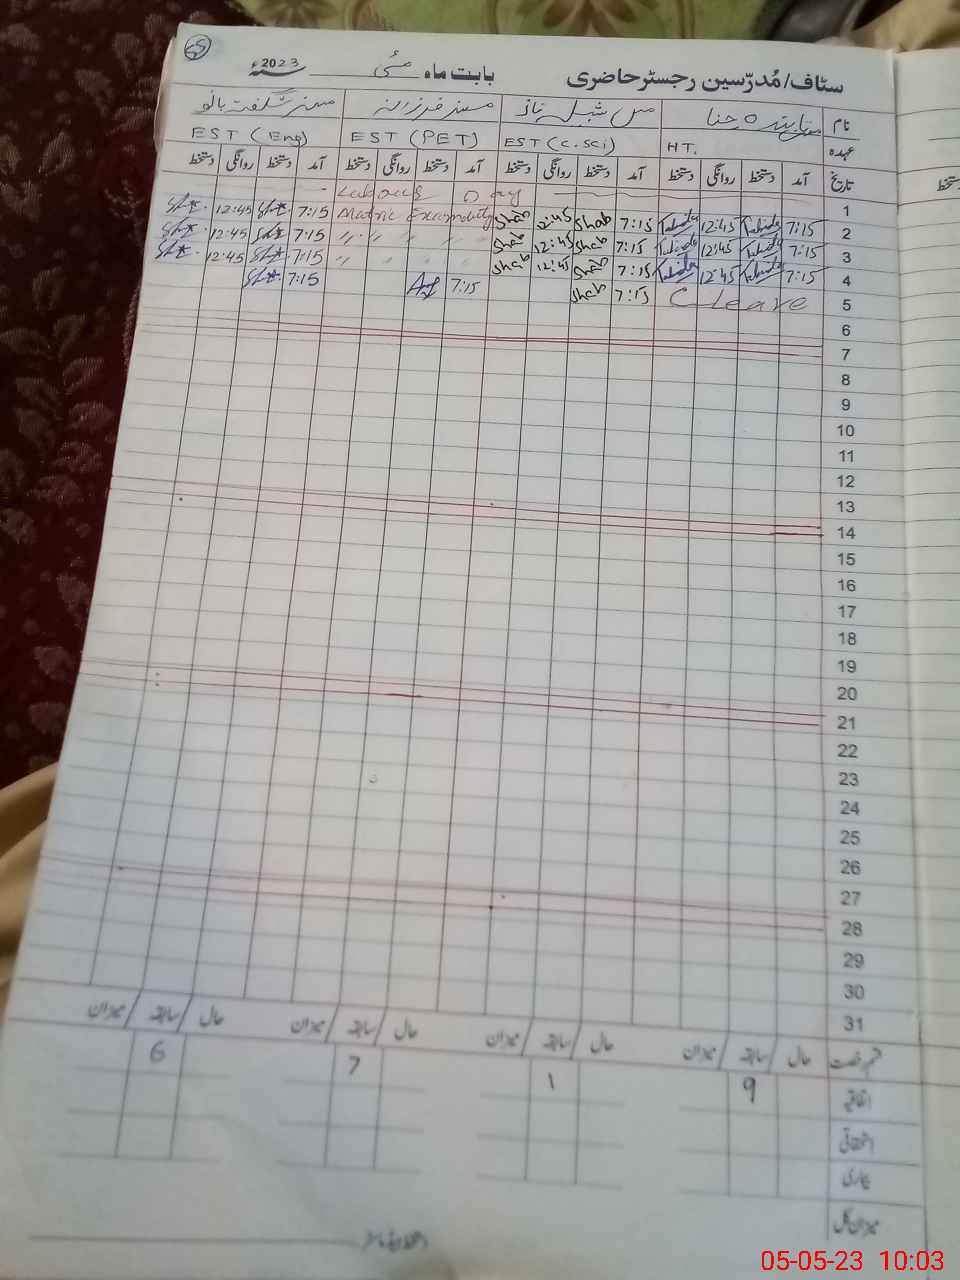 سٹاف/مُدرّسین رجسٹر حاضری بابت ماہ مئی سنہ 2023ء
نام مس شگفتہ بانو
عہدہ HT. EST (C.Sci) EST (PET) EST (Eng)
تاریخ آمد دستخط روانگی دستخط آمد دستخط روانگی دستخط آمد دستخط روانگی دستخط آمد دستخط روانگی دستخط
1 Labour Day
2 7:15 12:45 7:15 Shab 12:45 Shab Matric 7:15 12:45
3 7:15 12:45 7:15 Shab 12:45 Shab " " " " 7:15 12:45
4 7:15 12:45 7:15 Shab 12:45 Shab " " " " 7:15 12:45
5 C leave 7:15 Shab 7:15 7:15
6
7
8
9
10
11
12
13
14
15
16
17
18
19
20
21
22
23
24
25
26
27
28
29
30
31
قسم رخصت حال / سابقہ / میزان حال / سابقہ / میزان حال / سابقہ / میزان حال / سابقہ / میزان
اتفاقیہ 9 1 7 6
استحقاقی
بیماری
میزان کل
05-05-23 10:03